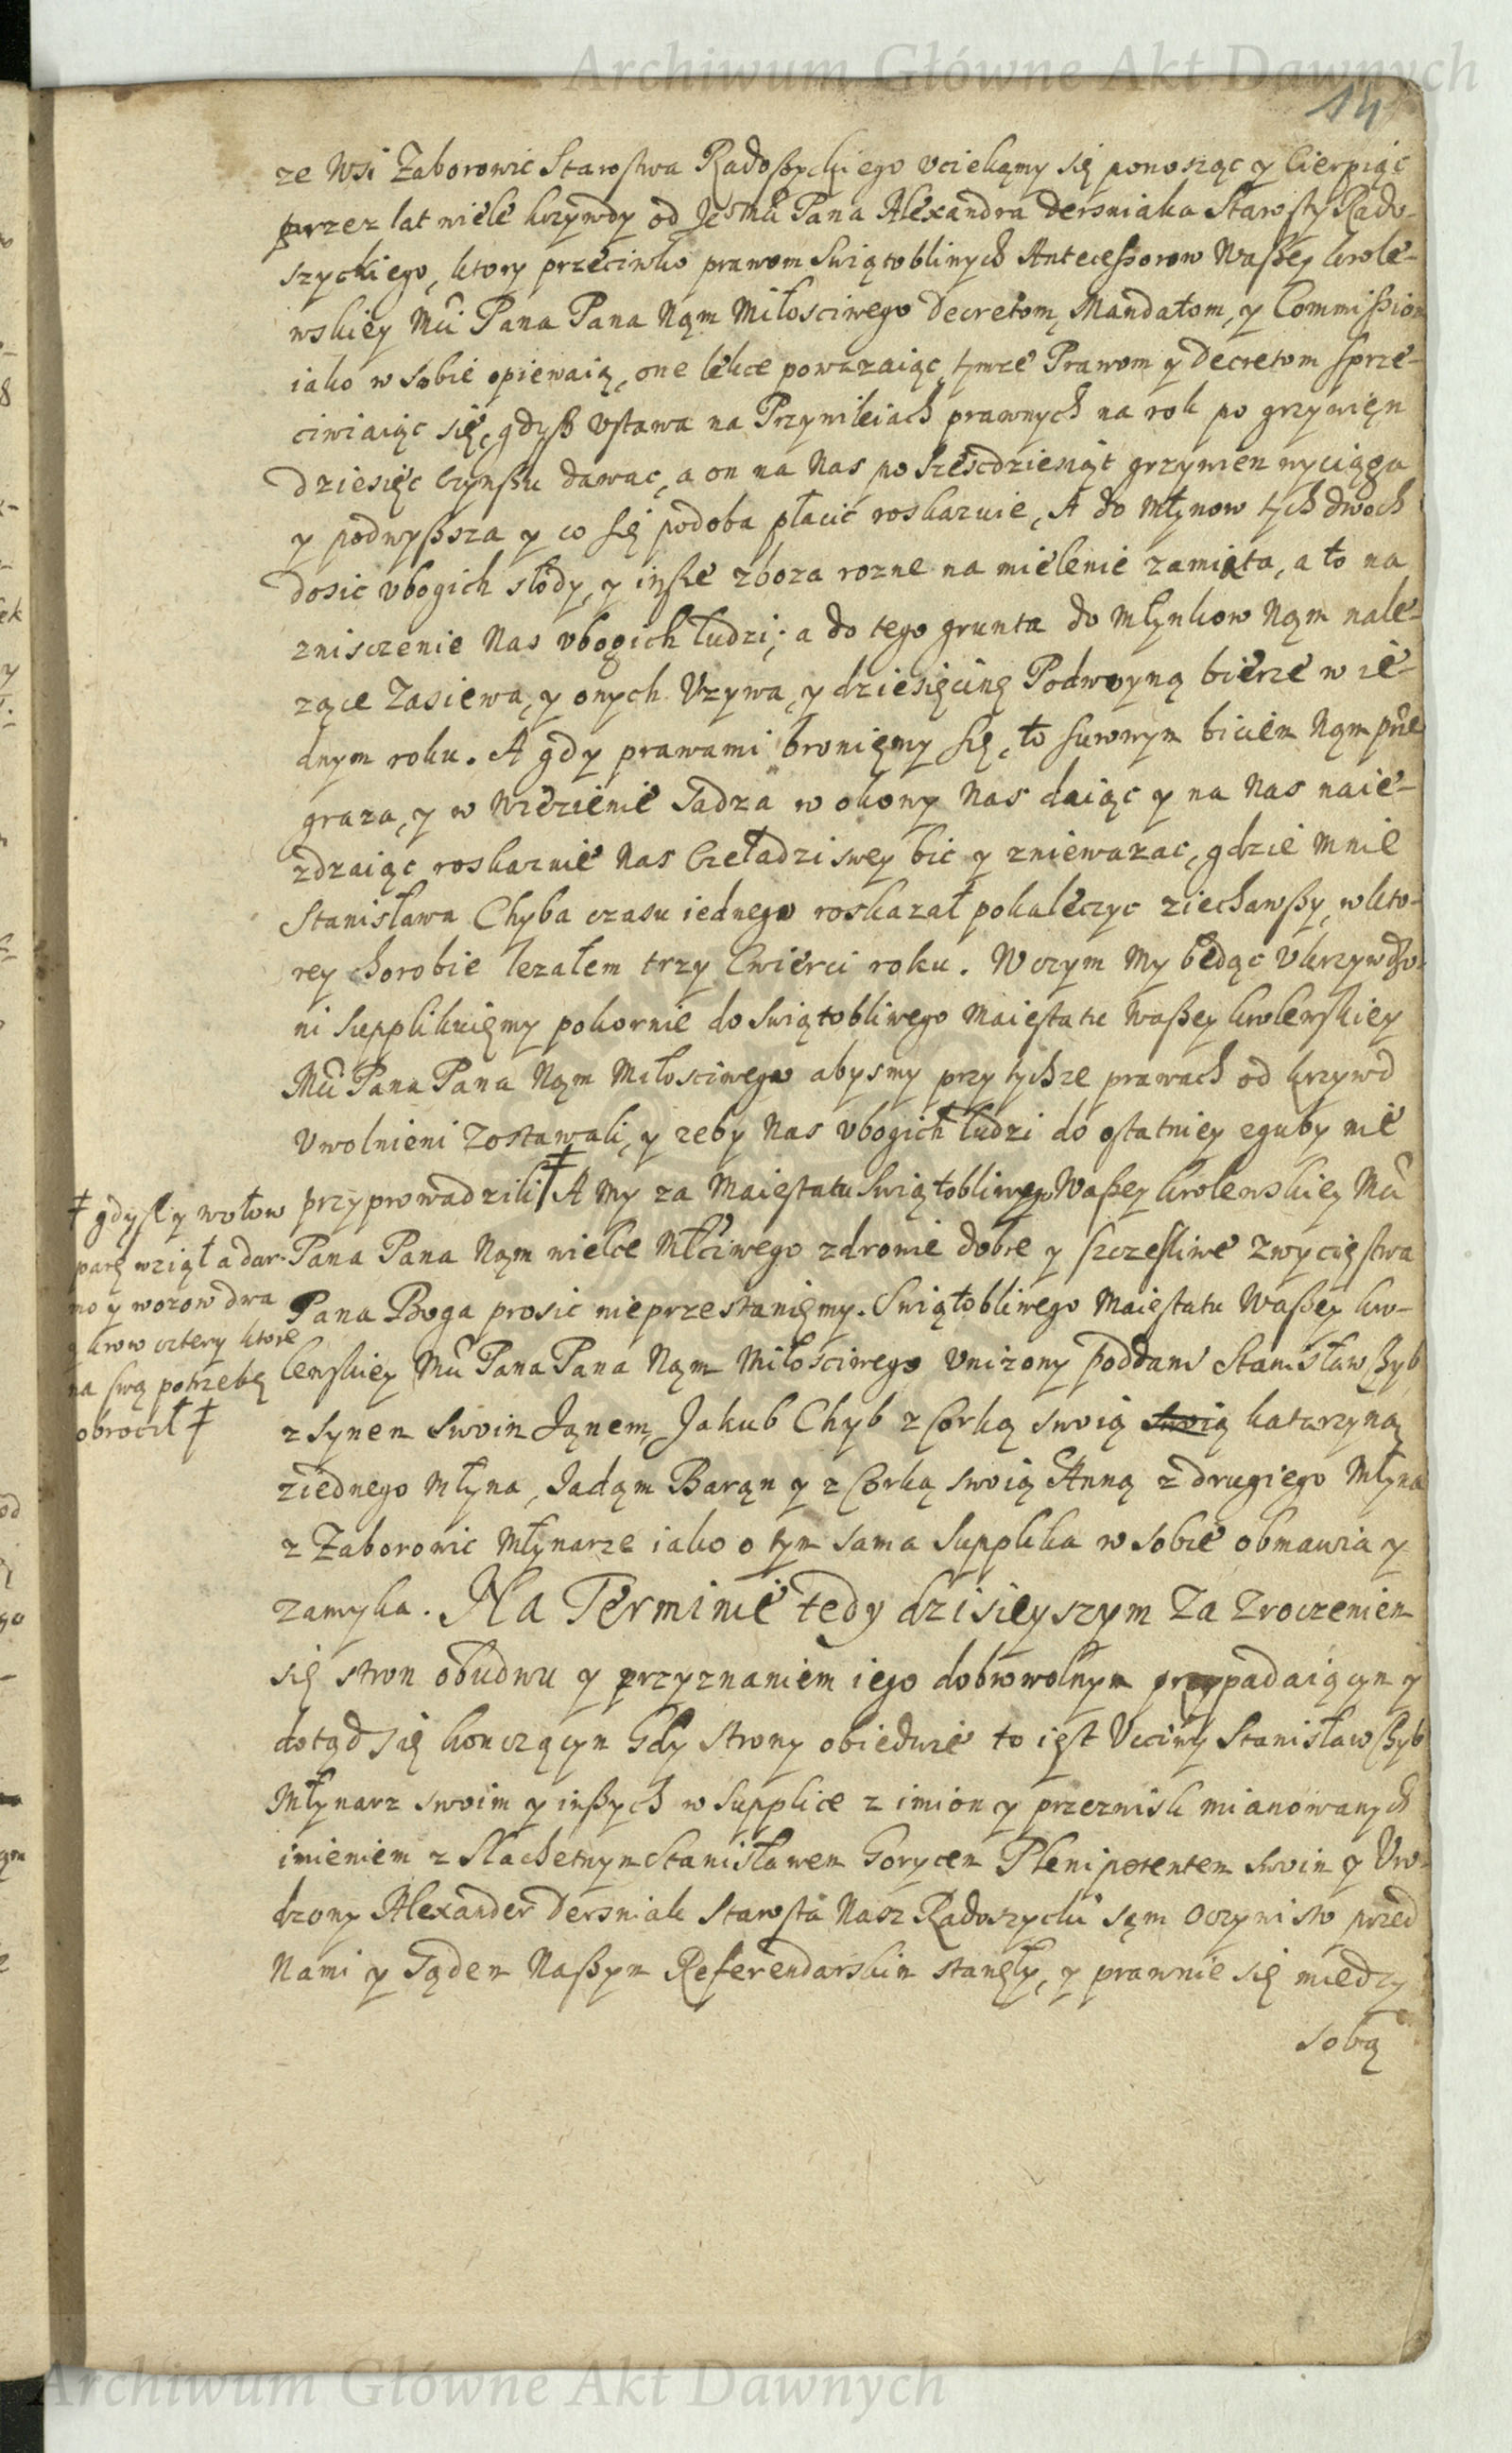 Archiwum Główne Akt Dawnych
14
ze Wsi Zaborowic Starostwa Radoszyckiego vciekąmy się ponosząc y Cierpiąc
przez lat wiele krzywdy od Je° Mći Pana Alexandra Dersniaka Starosty Rado-
szyckiego, ktory przeciwko prawom Swiątobliwych Antecessorow Waßey krole-
wskiey Mći Pana Pana Nąm Miłosciwego Decretom, Mandatom, y Commißiom
iako w sobie opiewaią, one lekce powazaiąc, tymze Prawom y Decretom sprze-
ciwiaiąc się, gdyß vstawa na Przywileiach prawnych na rok po grzywięn
dziesięc Czynßu dawac, a on na Nas po szescdziesiąt grzywien wyciąga
y podwyßsza y co się podoba płacić roskazuie, A do Młynow tych dwoch
dosic vbogich słody, y inße zboza rozne na mielenie zamiata, a to na
znisczenie Nas vbogich ludzi; a do tego grunta do Młynkow Nąm nale-
zące Zasiewa, y onych Vzywa, y dziesięcinę Podwoyną bierze w ie-
dnym roku. A gdy prawami bronięmy się, to surowym biciem Nąm prze
graza, y w Wiezienie Sadza w okowy Nas daiąc y na Nas naie-
zdzaiąc roskazuie Nas Czeladzi swey bic y zniewazac, gdzie mnie
Stanisława Chyba czasu iednego roskazał pokaleczyc ziechawßy, w kto-
rey chorobie lezałem trzy Cwierci roku. W czym My będąc Vkrzywdzo-
ni supplikuięmy pokornie do Swiątobliwego Maiestatu Waßey krolewskiey
Mći Pana Pana Nąm Miłosciwego abysmy przy tychze prawach od krzywd
Vwolnieni Zostawali, y zeby Nas vbogich ludzi do ostatniey zguby nie
przyprowadzili ‡ A My za Maiestatu Swiątobliwego Waßey krolewskiey Mći
Pana Pana Nąm wielce Młciwego zdrowie dobre y szczesliwe zwycięstwa
Pana Boga prosic nieprzestanięmy. Swiątobliwego Maiestatu Waßey kro-
lewskiey Mći Pana Pana Nąm Miłosciwego Vnizony poddani Stanisław Hyb
z synem Swoim Jąnem, Jakub Chyb z Corką swoią swoią katarzyną
ziednego Młyna, Jadąm Barąn y z Corką swoią Anną z drugiego Młyna
z Zaborowic Młynarze iako o tym sama Supplika w sobie obmawia y
zamyka. Na Terminie tedy dzisieyszym Za Zroczeniem
się stron obudwu y przyznaniem iego dobrowolnym przypadaiącym y
dotąd się konczącym Gdy strony obiedwie to iest Vcciwy Stanisław Hyb
Młynarz swoim y inßych w Supplice z imion y przezwisk mianowanych
imieniem z Slachetnym Stanisławem Gorycem Plenipotentem swoim y Vro-
dzony Alexander Dersniak Starosta Nasz Radoszycki sąm oczywisto przed
Nami y Sądem Naßym Referendarskim stanęły, y prawnie się miedzy
sobą
‡ gdyß y wołow
parę wziął a dar-
mo y wozow dwa
y krow cztery ktore
na swą potrzebę
obrocił ‡
Archiwum Główne Akt Dawnych